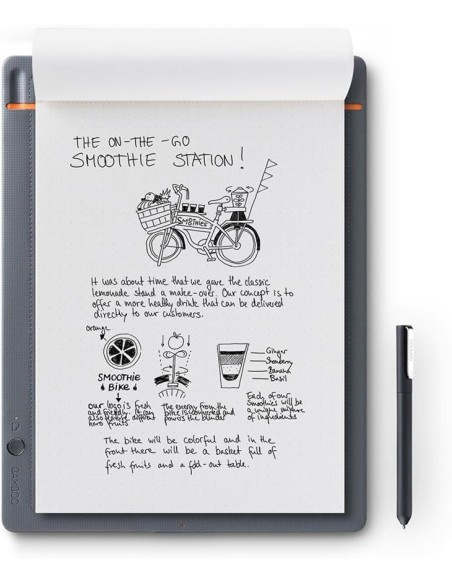 THE ON-THE-GO
SMOOTHIE STATION!
SMOOTHIES
It was about time that we gave the classic
lemonade stand a make-over. Our concept is to
offer a more healthy drink that can be delivered
directly to our customers.
orange
SMOOTHIE
BIKE
our logo is fresh
and friendly. It can
also feature different
hero fruits
the energy from the
bike is converted and
powers the blender
Ginger
Strawberry
Banana
Basil
Each of our
Smoothies will be
a unique mixture
of ingredients
The bike will be colorful and in the
front there will be a basket full of
fresh fruits and a fold-out table.
wacom